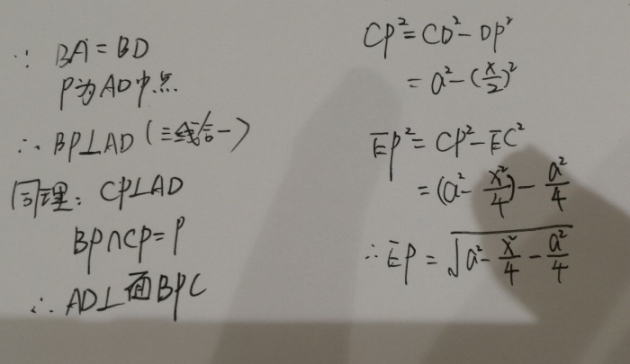 ∵ BA=BD
P为AD中点
∴ BP⊥AD(三线合一)
同理: CP⊥AD
BP∩CP=P
∴ AD⊥面BPC
CP²=CD²-DP²
=a²-(x/2)²
EP²=CP²-EC²
=(a²-x²/4)-a²/4
∴EP=√(a²-x²/4-a²/4)